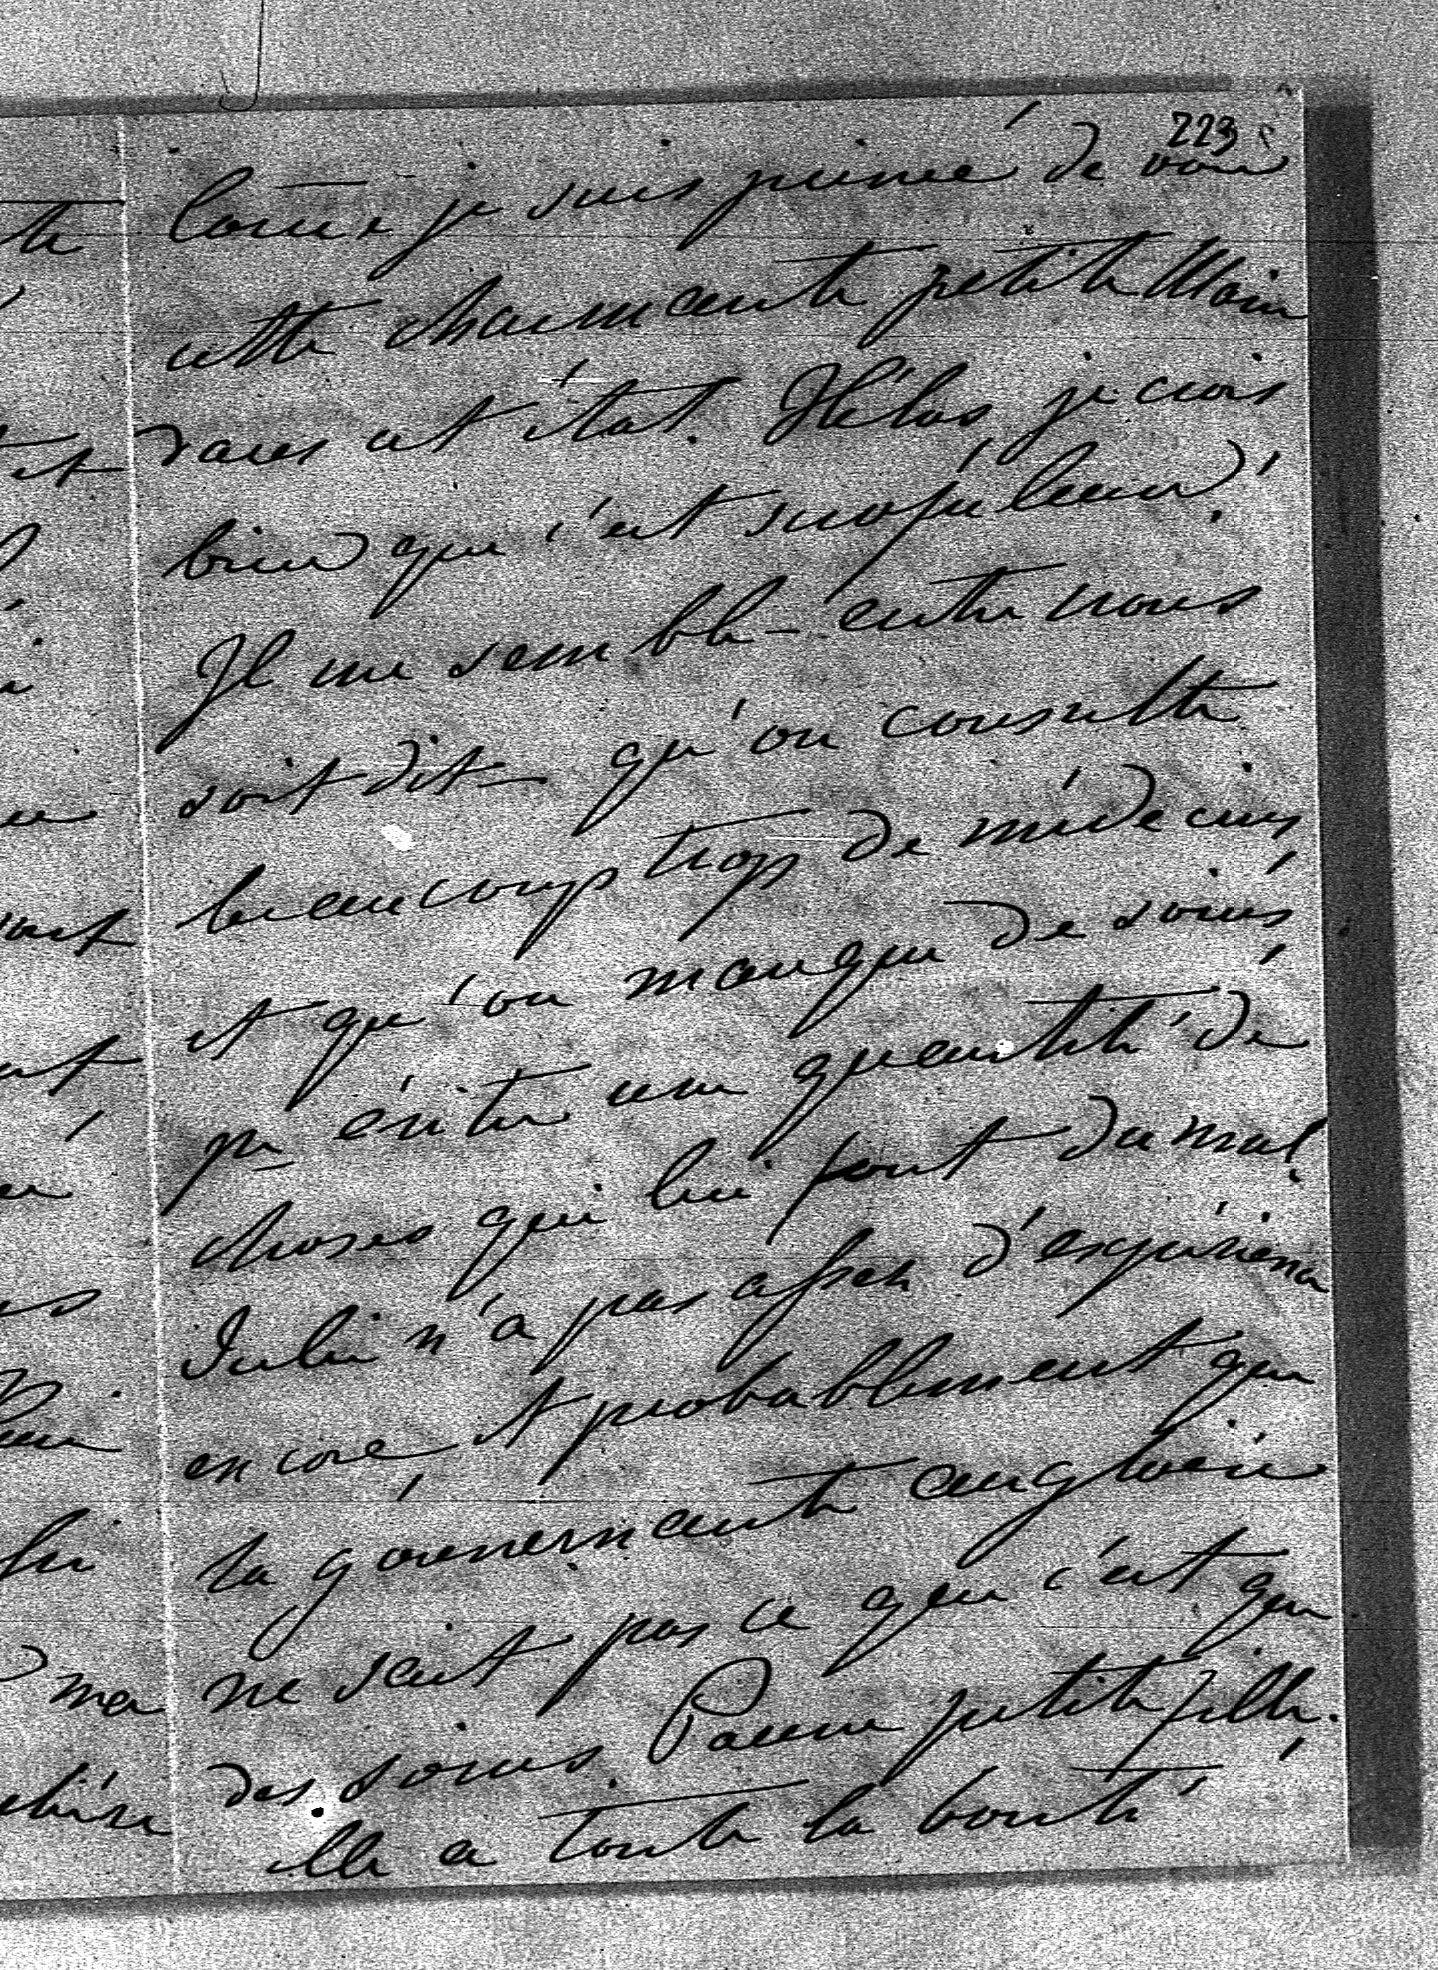 223
Comme je suis peinée de voir
cette charmante petite Main
dans cet état. Hélas je crois
bien que c'est scrofuleux!
Il me semble - entre nous
soit dit - qu'on consulte
beaucoup trop de médecins
et qu'on manque de soins
pr éviter une quantité de
choses qui lui font du mal.
Julie n'a pas assez d'expérience
encore, et probablement que
la gouvernante anglaise
ne sait pas ce que c'est que
des soins. Pauvre petite fille.
elle a toute la bonté